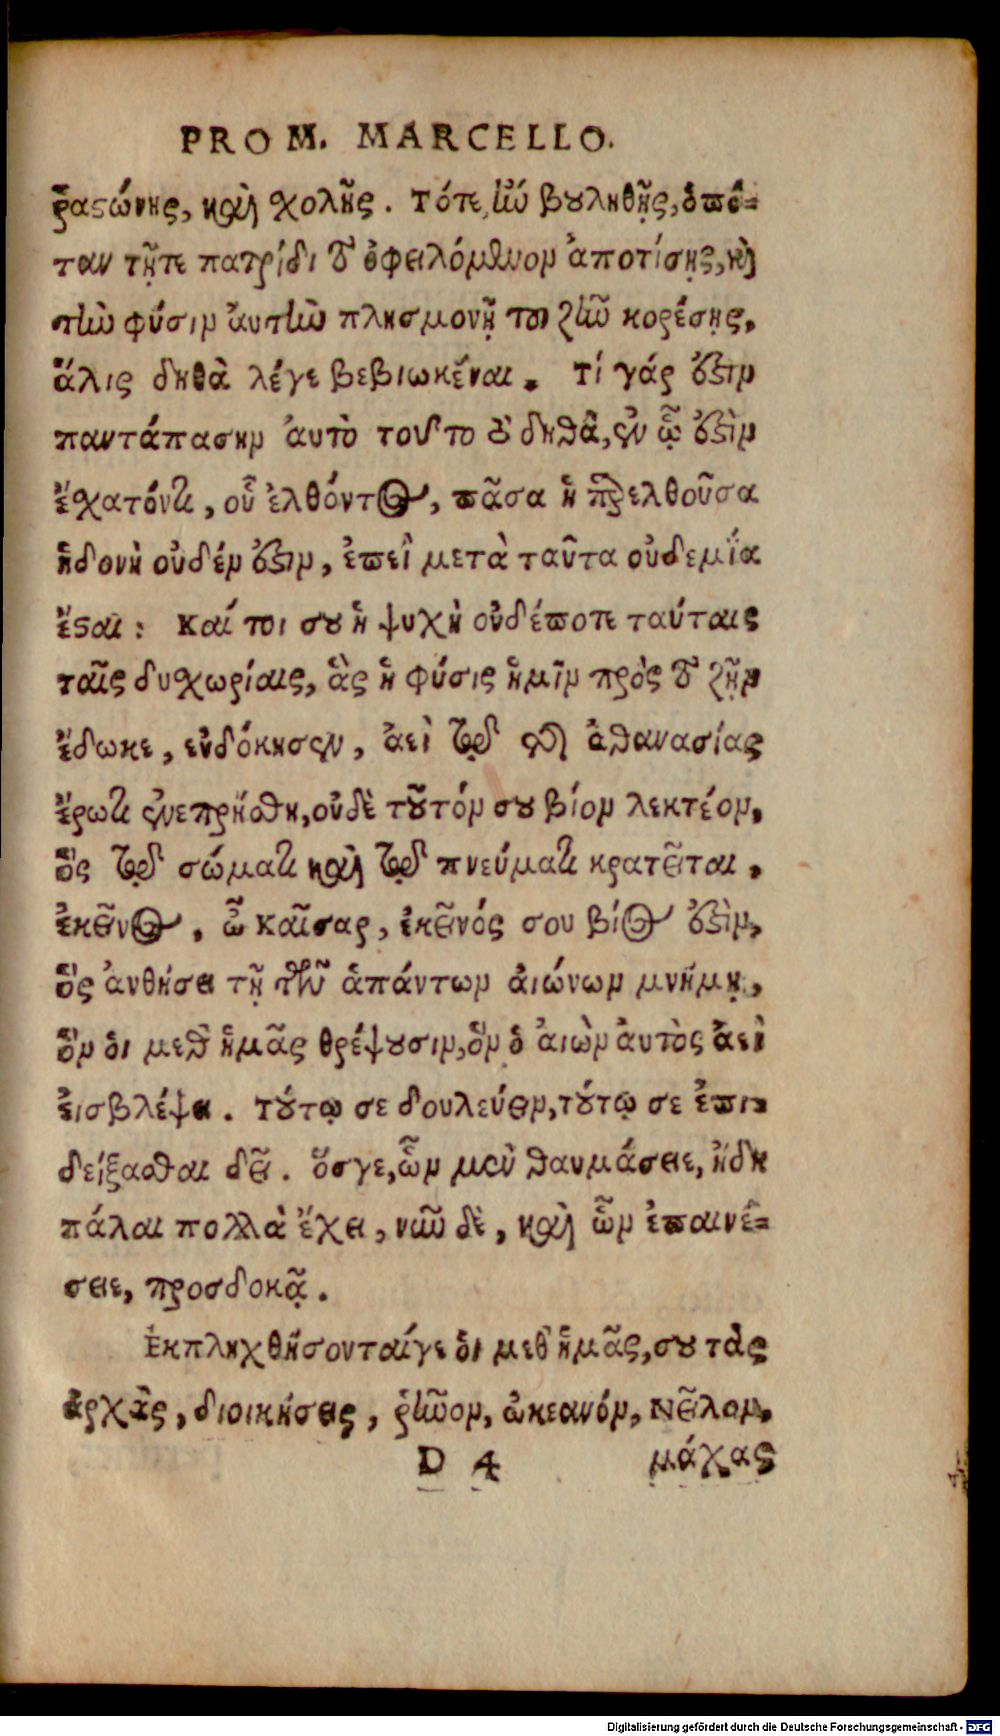 PRO M. MARCELLO.
ῥαστώνης, καὶ χολῆς. Τότε, ἰὼ βουληθῇς, ὁπό-
ταν τῇτε πατρίδι τὸ ὀφειλόμενον ἀποτίσῃς, καὶ
τὴν φύσιν ἀυτὴν πλησμονῇ τοῦ ζῆν κορέσῃς,
ἅλις δηθὰ λέγε βεβιωκέναι. Τί γάρ ὅξιν
παντάπασην ἀυτὸ τοῦτο τὸ δηθὰ, ἐν ᾧ ὅξὶν
ἔχατόντι, οὗ ἐλθόντος, πᾶσα ἡ παρελθοῦσα
ἡδονὴ οὐδέν ὅξιν, ἐπεὶ μετὰ ταῦτα οὐδεμία
ἔσαι: Καί τοι σου ἡ ψυχὴ οὐδέποτε ταύταις
ταῖς δυχωρίαις, ἃς ἡ φύσις ἡμῖν πρὸς τὸ ζῆν
ἔδωκε, εὐδόκησεν, ἀεὶ τῷ τῆς ἀθανασίας
ἔρωτι ἐνεπρήσθη, οὐδὲ τοῦτόν σου βίον λεκτέον,
ὃς τῷ σώματι καὶ τῷ πνεύματι κρατεῖται.
ἐκεῖνος, ὦ Καῖσαρ, ἐκεῖνός σου βίος ὅξὶν,
ὃς ἀνθήσει τῇ τῶν ἁπάντων ἀιώνων μνήμῃ,
ὃν ὁι μεθ ἡμᾶς θρέψουσιν, ὃν ὁ ἀιὼν ἀυτὸς ἀεὶ
ἐισβλέψει. Τούτῳ σε δουλεύειν, τούτῳ σε ἐπι-
δείξασθαι δεῖ. ὅσγε, ὧν μὲν θαυμάσειε, ἤδη
πάλαι πολλὰ ἔχει, νῦν δὲ, καὶ ὧν ἐπαινέ-
σειε, προσδοκᾷ.
Ἐκπληχθήσονταίγε ὁι μεθ ἡμᾶς, σου τὰς
ἀρχὰς, διοικήσεις, ῥῆνον, ὠκεανόν, Νεῖλον,
D 4 μάχας
Digitalisierung gefördert durch die Deutsche Forschungsgemeinschaft - DFG